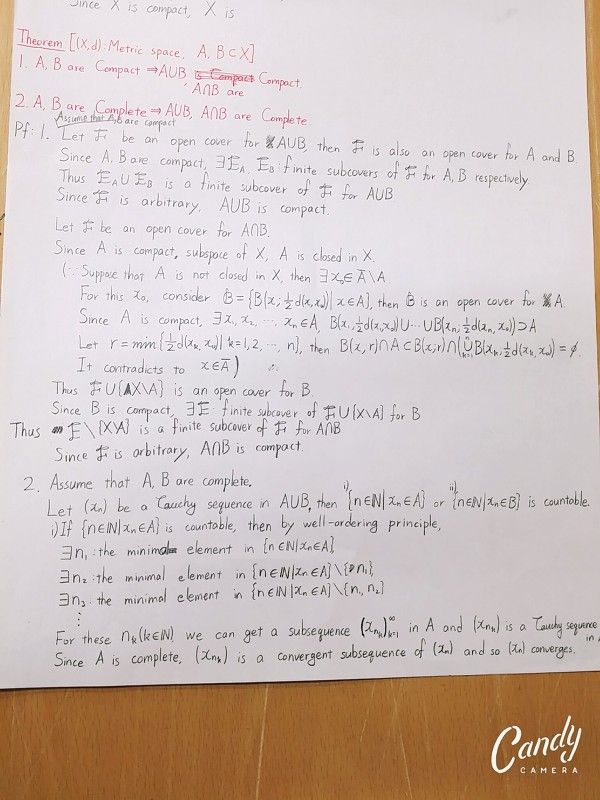 Since X is compact, X is
Theorem [(X,d): Metric space, A, B⊂X]
1. A, B are Compact ⇒ A∪B, A∩B are Compact.
2. A, B are Complete ⇒ A∪B, A∩B are Complete.
Assume that A,B are compact
Pf: 1. Let F be an open cover for A∪B, then F is also an open cover for A and B.
Since A, B are compact, ∃E_A, E_B: finite subcovers of F for A, B respectively.
Thus E_A ∪ E_B is a finite subcover of F for A∪B
Since F is arbitrary, A∪B is compact.
Let F be an open cover for A∩B.
Since A is compact, subspace of X, A is closed in X.
(∵ Suppose that A is not closed in X, then ∃x₀∈A̅\A
For this x₀, consider B̂ = {B(x; ½d(x,x₀)) | x∈A}, then B̂ is an open cover for A.
Since A is compact, ∃x₁, x₂, ⋯, xₙ∈A, B(x₁, ½d(x₁,x₀))∪⋯∪B(xₙ, ½d(xₙ,x₀))⊃A
Let r = min{½d(xₖ,x₀) | k=1,2,⋯, n}, then B(x,r)∩A⊂B(x;r)∩(⋃ₖ₌₁ⁿB(xₖ,½d(xₖ,x₀)) = ∅.
It contradicts to x∈A̅)
Thus F∪{X\A} is an open cover for B.
Since B is compact, ∃E: finite subcover of F∪{X\A} for B
Thus E\{X\A} is a finite subcover of F for A∩B
Since F is arbitrary, A∩B is compact.
2. Assume that A, B are complete.
Let (xₙ) be a Cauchy sequence in A∪B, then i) {n∈ℕ|xₙ∈A} or ii) {n∈ℕ|xₙ∈B} is countable.
i) If {n∈ℕ|xₙ∈A} is countable, then by well-ordering principle,
∃n₁: the minimal element in {n∈ℕ|xₙ∈A}
∃n₂: the minimal element in {n∈ℕ|xₙ∈A}\{n₁}
∃n₃: the minimal element in {n∈ℕ|xₙ∈A}\{n₁, n₂}
⋮
For these nₖ(k∈ℕ) we can get a subsequence (xₙₖ)ₖ₌₁^∞ in A and (xₙₖ) is a Cauchy sequence in
Since A is complete, (xₙₖ) is a convergent subsequence of (xₙ) and so (xₙ) converges.
Candy
CAMERA